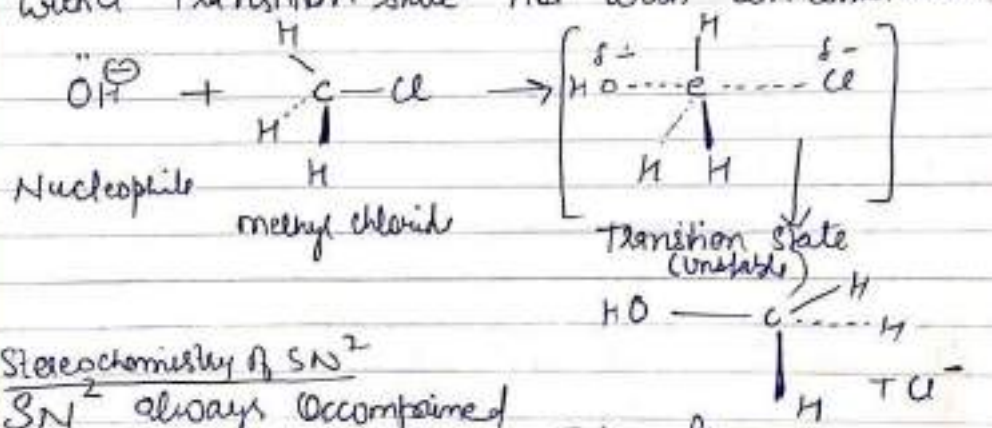 with a Transition state
H H
ÖH⊖ + C—Cl → [ HO-----C------Cl ]
δ- δ-
H H H
H
Nucleophile
methyl chloride Transition state
(Unstable)
HO — C H
-----H
Stereochemistry of SN²
H + Cl⁻
SN² always Occompained